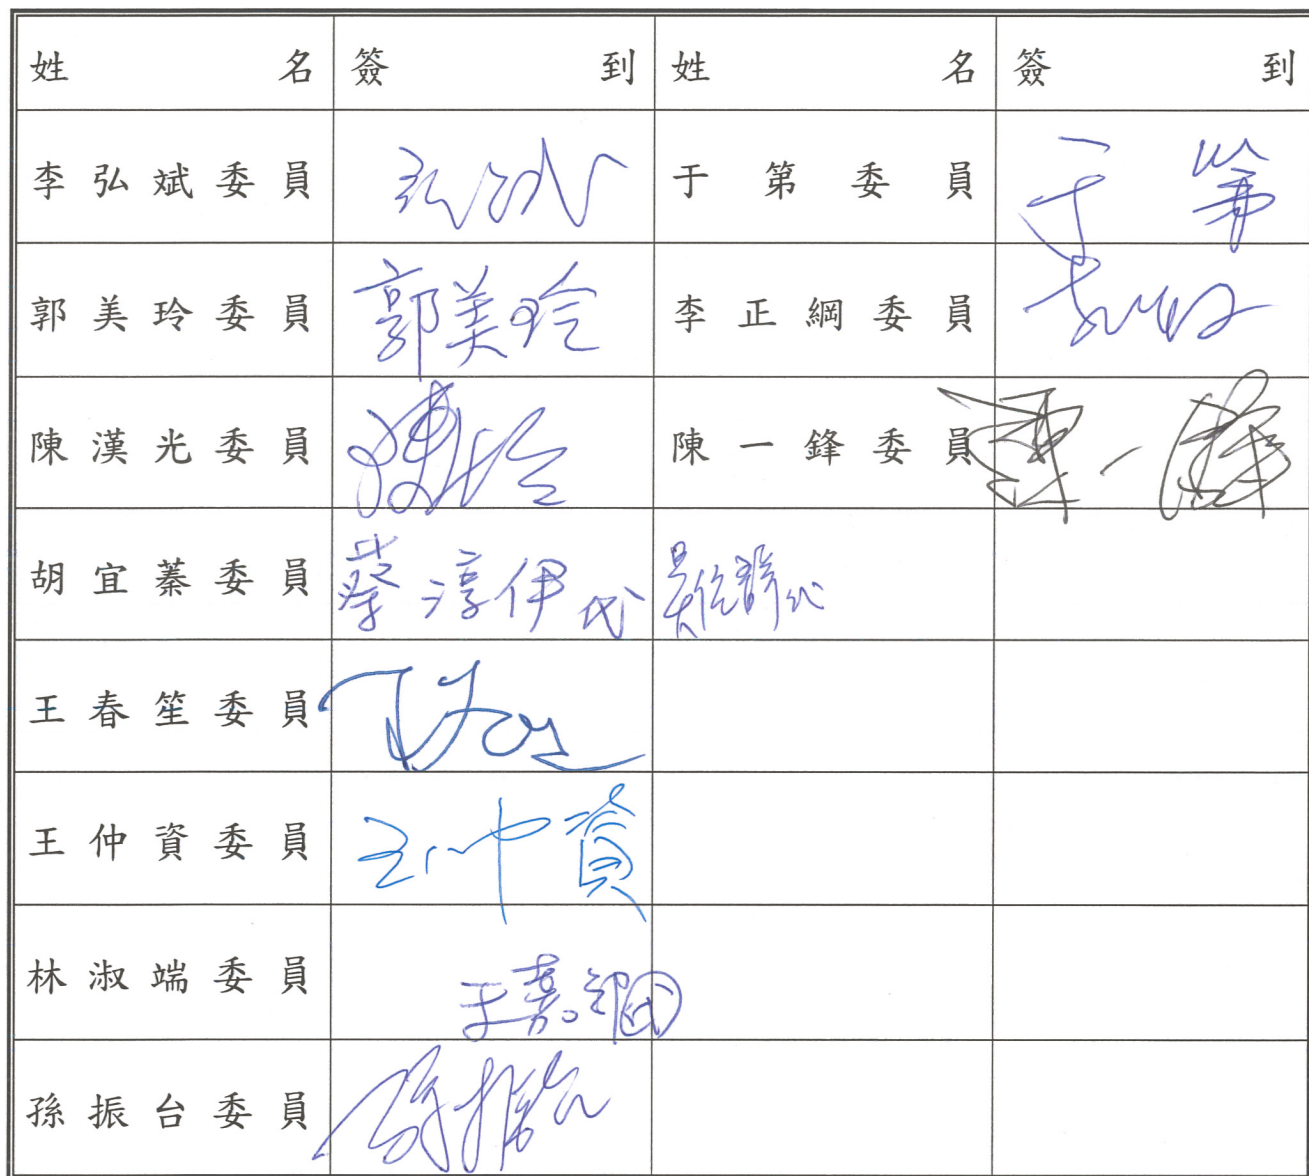 姓名 簽到 姓名 簽到
李弘斌委員 于第委員 于第
郭美玲委員 郭美玲 李正綱委員
陳漢光委員 陳一鋒委員 陳一鋒
胡宜蓁委員 蔡淳伊代
王春笙委員
王仲資委員 王仲資
林淑端委員
孫振台委員 孫振台